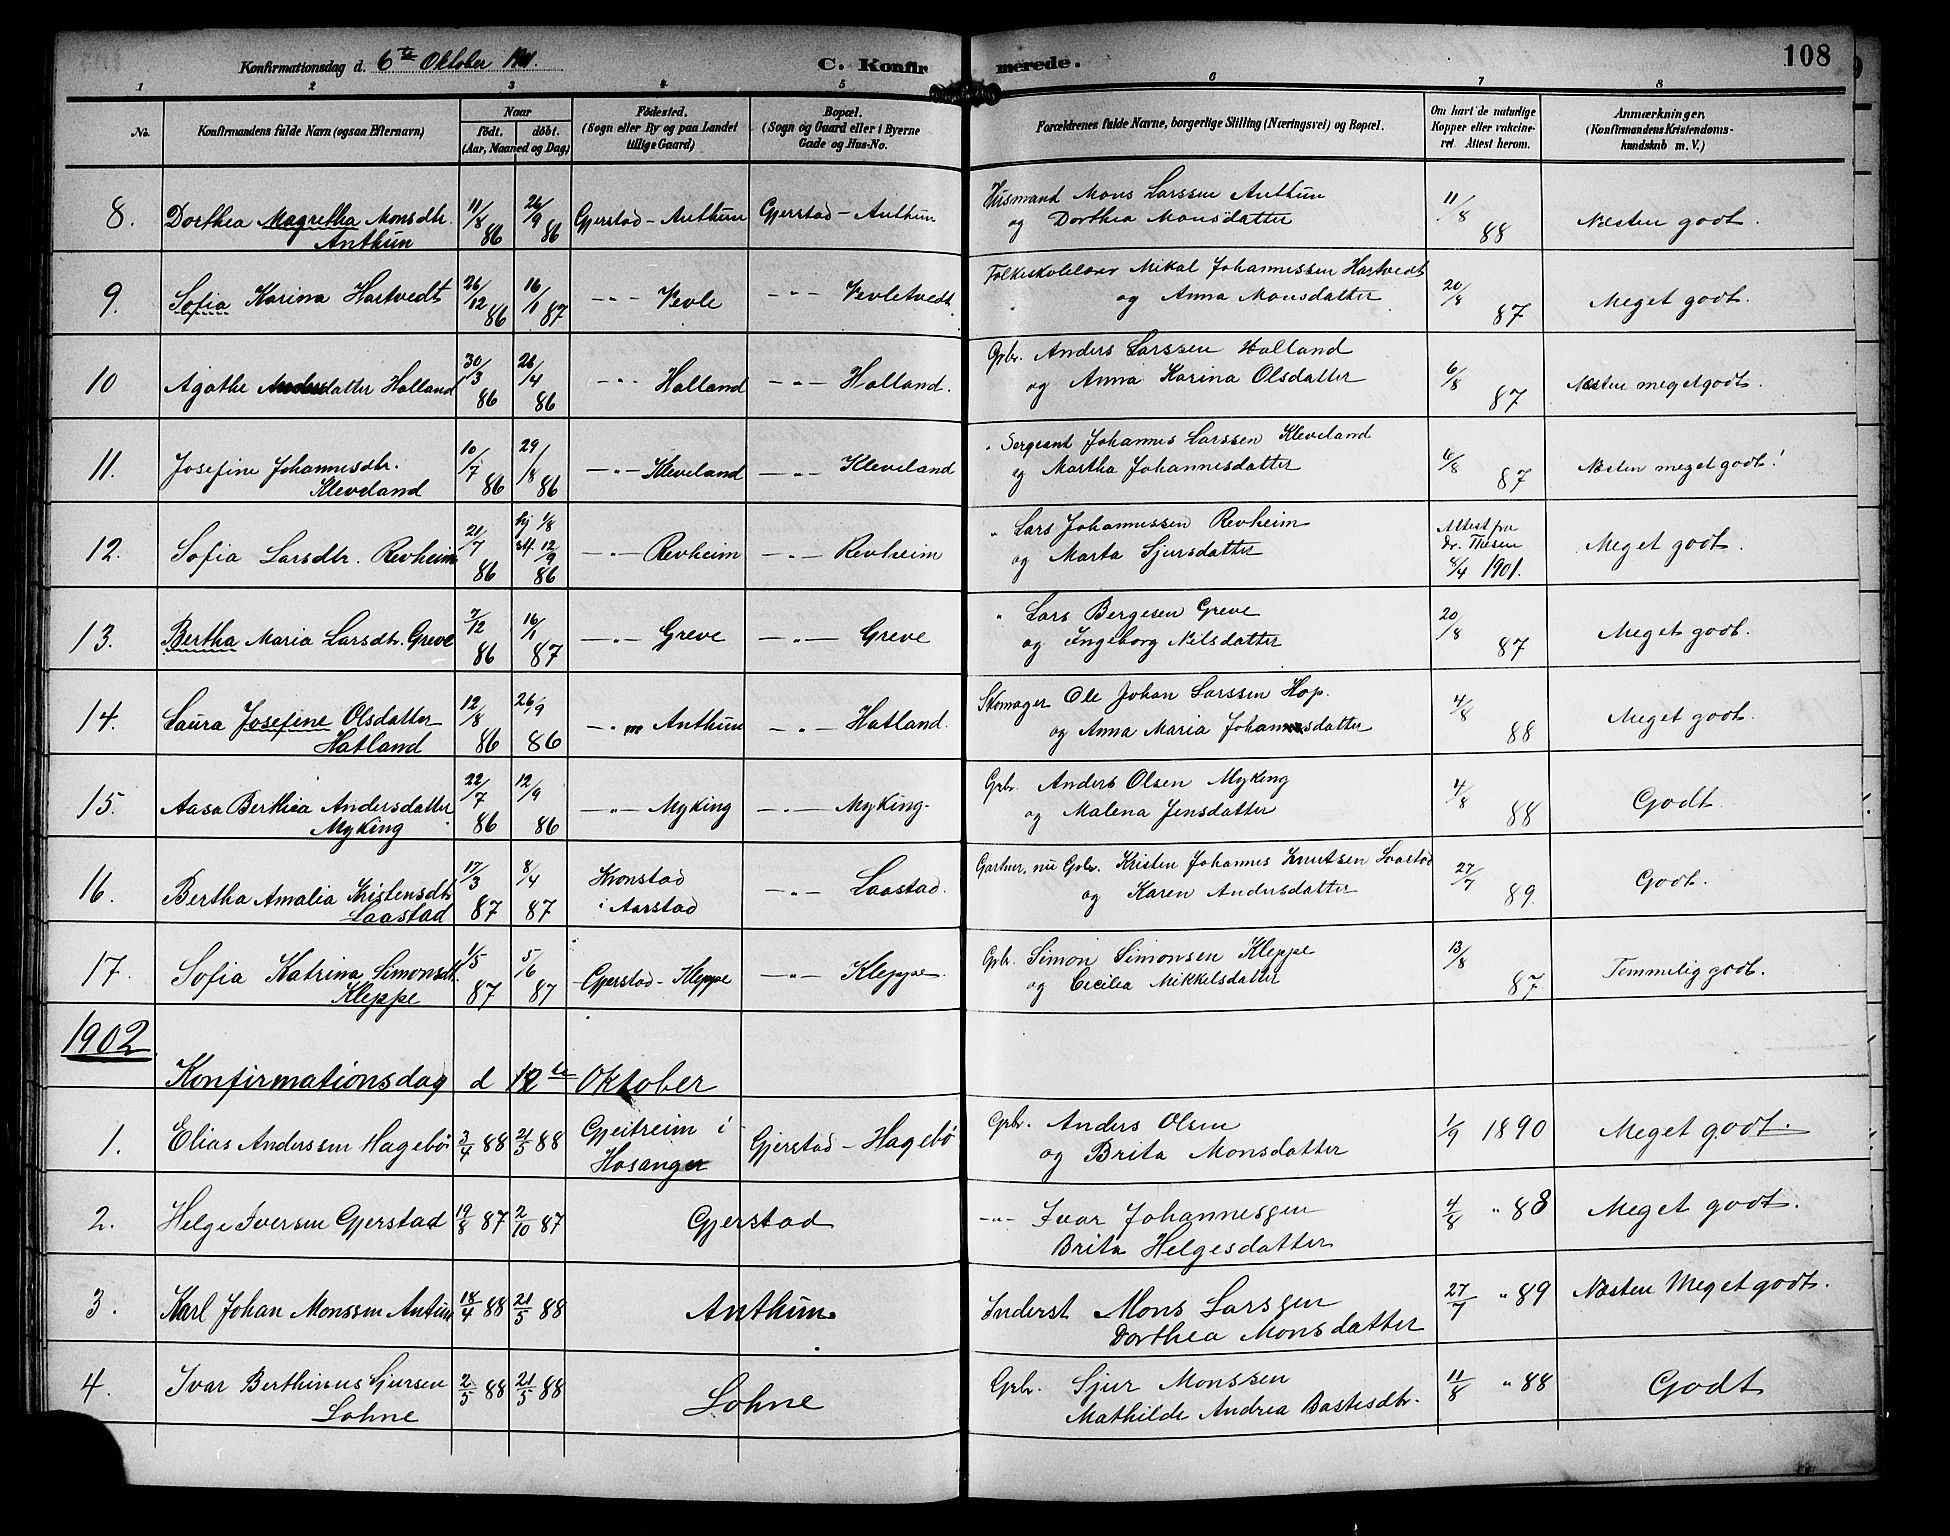 Konfirmationsdag d. 6te Oktober 1901. C. Konfirmerede. 108
1 2 3 4 5 6 7 8
No. Konfirmandens fulde Navn (ogsaa Efternavn) Naar født, døbt. (Aar, Maaned og Dag) Fødested. (Sogn eller By og paa Landet tillige Gaard) Bopæl. (Sogn og Gaard eller i Byerne Gade og Hus-No. Forældrenes fulde Navne, borgerlige Stilling (Næringsvei) og Bopæl. Om havt de naturlige Kopper eller vakcineret. Attest herom. Anmærkninger. (Konfirmandens Kristendomskundskab m. V.)
8. Dorthea Magretha Monsdtr. Anthun 11/8 86 26/9 86 Gjerstad - Anthun Gjerstad - Anthun Husmand Mons Larssen Anthun 11/8 88 Næsten godt.
og Dorthea Monsdatter
9. Sofia Karina Hartvedt 26/12 86 16/1 87 —"— Vevle —"— Vevletvedt Folkeskolelærer Mikal Johannessen Hartvedt 20/8 87 Meget godt.
og Anna Monsdatter
10 Agathe Andersdatter Holland 30/3 86 26/4 86 —"— Holland —"— Holland. Gbr. Anders Larssen Holland 6/8 87 Næsten meget godt.
og Anna Karina Olsdatter
11. Josefine Johannesdtr. Kleveland 10/7 86 29/8 86 —"— Kleveland —"— Kleveland " Sergeant Johannes Larssen Kleveland 6/8 87 Næsten meget godt!
og Martha Johannesdatter
12. Sofia Larsdtr. Revheim 21/7 86 hj 1/8 stf. 12/9 86 —"— Revheim —"— Revheim " Lars Johannessen Revheim Attest fra Dr. Thesen /4 1901. Meget godt.
og Marta Sjursdatter
13. Bertha Maria Larsdtr. Greve 7/12 86 16/1 87 —"— Greve —"— Greve " Lars Bergesen Greve 20/8 87 Meget godt.
og Ingeborg Nilsdatter
14. Laura Josefine Olsdatter Hatland 12/8 86 26/9 86 —"— Anthun —"— Hatland. Skomager Ole Johan Larssen Hop. 4/8 88 Meget godt.
og Anna Maria Johannesdatter
15. Aasa Berthea Andersdatter Myking 22/7 86 12/9 86 —"— Myking —"— Myking- Gbr. Anders Olsen Myking 4/8 88 Godt.
og Malena Jensdatter
16. Bertha Amalia Kristensdtr. Laastad 17/3 87 8/4 87 Kronstad i Aarstad —"— Laastad. Gartner, nu Gbr. Kristen Johannes Knutsen Laastad 27/7 89. Godt.
og Karen Andersdatter
17. Sofia Katrina Simonsdt. Kleppe 1/5 87 5/6 87 Gjerstad - Kleppe —"— Kleppe. Gbr. Simon Simonsen Kleppe 13/8 87 Temmelig godt.
og Cicilia Mikkelsdatter
1902
Konfirmationsdag d 12te Oktober
1. Elias Anderssen Hagebø 3/4 88 21/5 88 Gjeitreim i Hosanger Gjerstad - Hagebø Gbr. Anders Olsen 1/9 1890 Meget godt.
og Brita Monsdatter
2. Helge Iversen Gjerstad 19/8 87 2/10 87 Gjerstad —"— Ivar Johannesgen 4/8 " 88 Meget godt.
Brita Helgesdatter
3. Karl Johan Monssen Antun 18/4 88 21/5 88 Anthun. Inderst Mons Larsgen 27/7 " 89 Næsten Meget godt.
Dorthea Monsdatter
4. Ivar Berthinus Sjursen Lohne 2/5 88 21/5 88 Lohne Gbr. Sjur Monssen 11/8 " 88 Godt
Mathilde Andrea Bastesdtr.